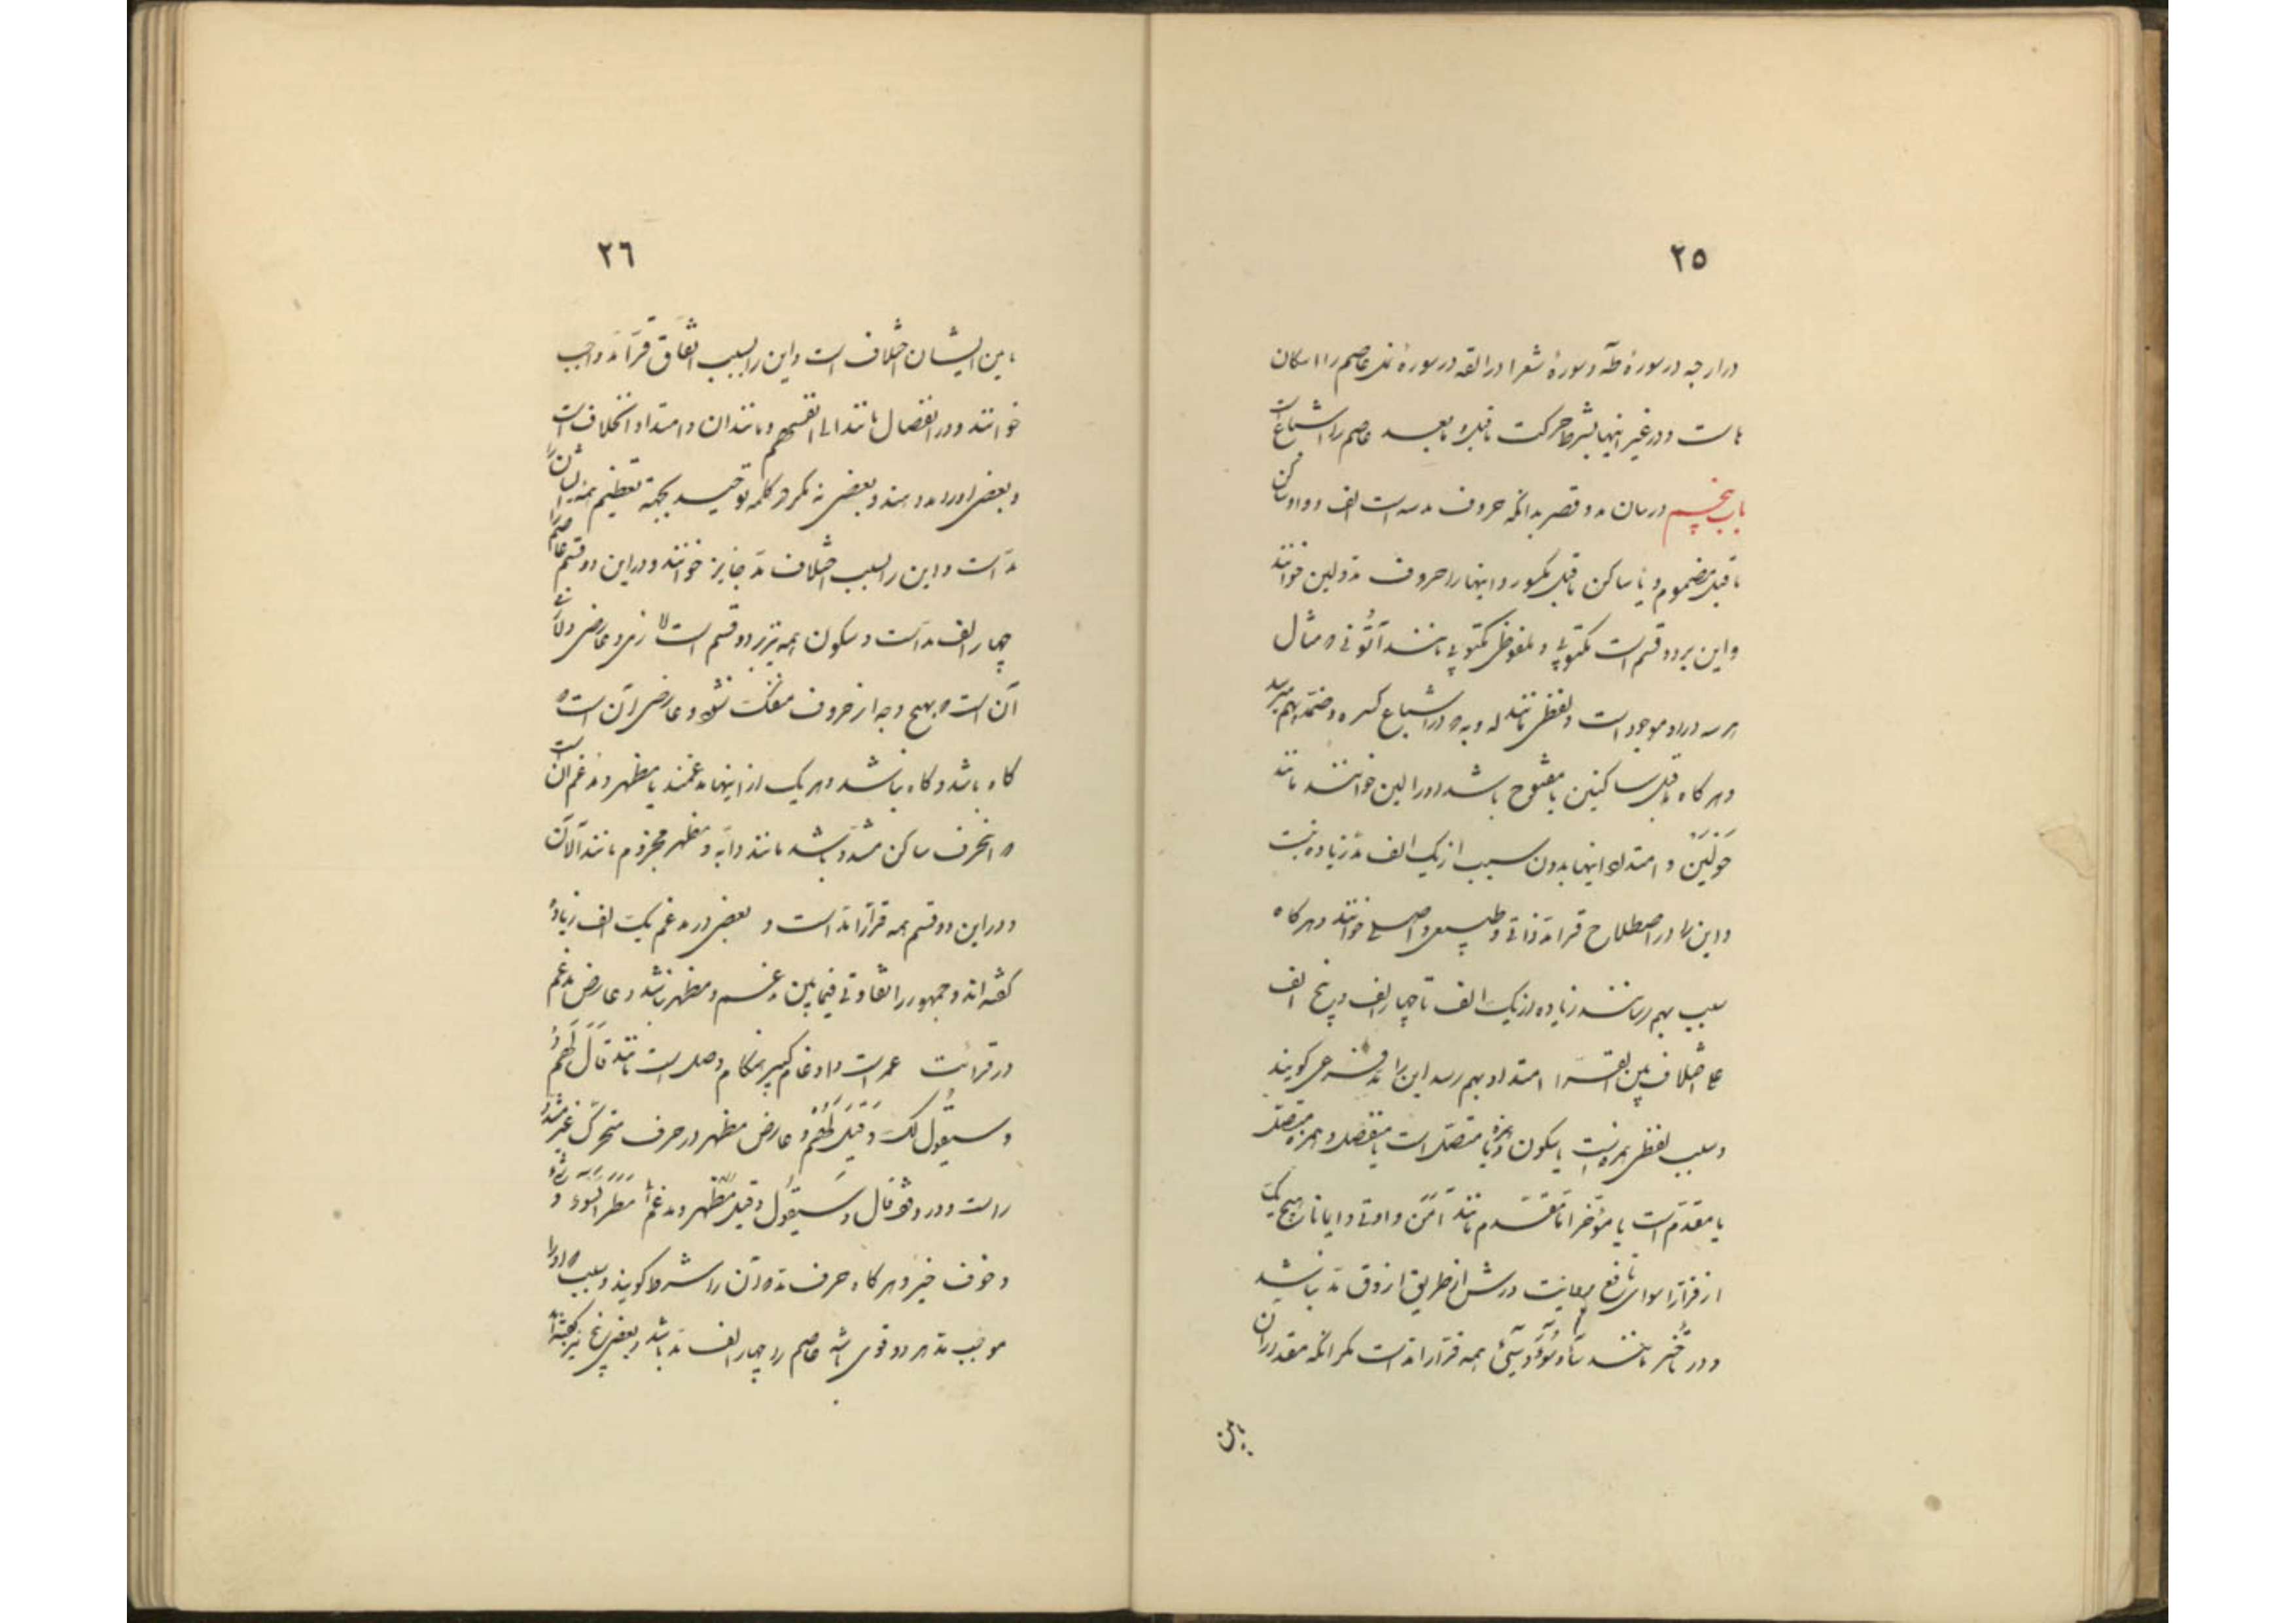 ٢٥
در ارجه در سورهٔ طه و سورهٔ شعرا در القه در سورهٔ نمل عاصم را اسکان
ها است و در غیر اینها بشرط حرکت ماقبل و مابعد عاصم را اشباع است
باب پنجم در بیان مد و قصر بدانکه حروف مد سه است الف و واو ساکن
ماقبل مضموم و یا ساکن ماقبل مکسور و اینها را حروف مد و لین خوانند
و این بر دو قسم است مکتوبی و ملفوظی مکتوبی مانند آتُونی که مثال
هر سه در او موجود است و لفظی مانند له و به که در اشباع کسره و ضمه بهم میرسد
و هر گاه ماقبل ساکنین یا مفتوح باشد او را لین خوانند مانند
حَولَین و امتداد اینها بدون سبب از یک الف مد زیاده نیست
و این را در اصطلاح قرا مد ذاتی و طبیعی و اصلی خوانند و هر گاه
سبب بهم رسانند زیاده از یک الف تا چهار الف و پنج الف
علی اختلاف بین القرّا امتداد بهم رسد این را مد فرعی کویند
و سبب لفظی همزه است یا سکون و همزه یا متصل است یا منفصل و همزه متصل
یا مقدّم است یا مؤخر اما مقدّم مانند آمَنَ و اوتی و ایمانا هیچ یک
از قرّا را سوای نافع بروایت ورش از طریق ازرق مد نباشد
و در تأخیر مانند شآء و سُوٓء و سِیٓئَ همه قرّا را مد است مکر آنکه مقدر آن
مابین
٢٦
مابین ایشان اختلاف است و این را بسبب اتفاق قرّا مد واجب
خوانند و در انفصال مانند الی انفسهم و مانند آن در امتداد اختلاف است
و بعضی او را مد دهند و بعضی نه مکر در کلمه توحید بجهة تعظیم همه ایشان را
مد است و این را بسبب اختلاف مد جایز خوانند و در این دو قسم عاصم را
چهار الف مد است و سکون همه نیز بر دو قسم است لازمی و عارضی و لازمی
آن است که بهیچ وجه از حروف منفک نشود و عارضی آن است که
کاه باشد و کاه نباشد و هر یک از اینها مدغمند یا مظهر و مدغم آن است
که انحرف ساکن مشدّد باشد مانند دابّه و مظهر مجزوم مانند آلآن
و در این دو قسم همه قرّا را مد است و بعضی در مدغم یک الف زیاده
کفته اند و جمهور را تفاوتی فیمابین مدغم و مظهر نباشد و عارض مدغم
در قرائت عمرو است و ادغام کبیر هنکام وصل است مانند قَالَ لَهُم
و سیقُول لک و قِیلَ لَهُم و عارض مظهر در حرف متحرک غیر مشدّد
راست و در وقف قال و سَیَقُول و قیل مظهر و مدغم مَطَرَ السَّوء و
و خوف خیر و هر کاه حرف مد که آن را شرط کویند و سبب که او را
موجب مد هر دو قوی باشد عاصم را چهار الف مد باشد و بعضی پنج نیز کفته‌اند